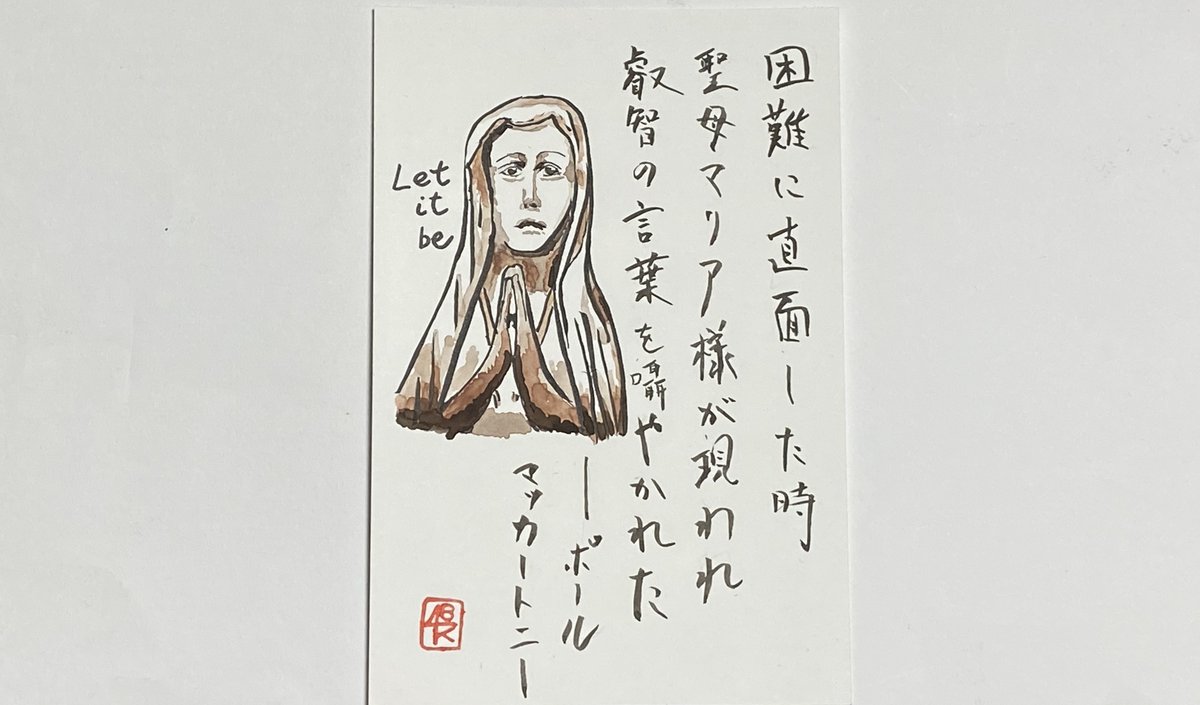 困難に直面した時
聖母マリア様が現われ
叡智の言葉を囁やかれた
―ポール
マッカートニー
Let
it
be